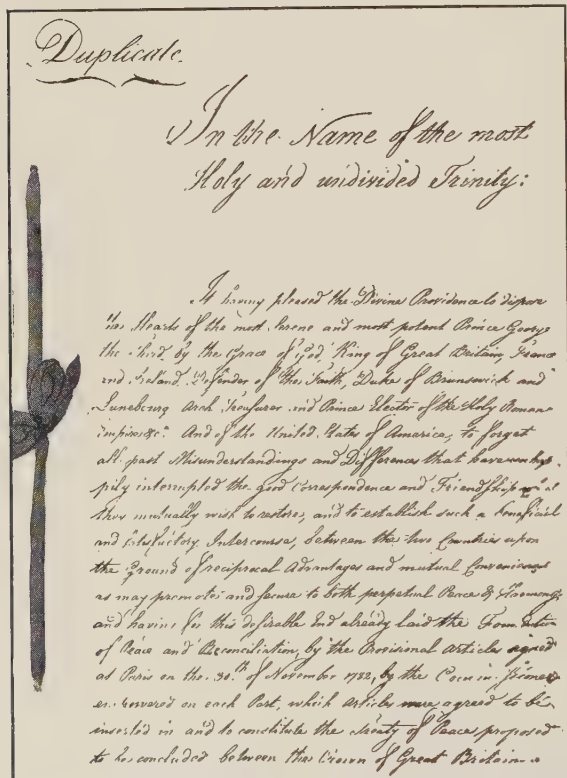 Duplicate.
In the Name of the most
Holy and undivided Trinity:
It having pleased the Divine Providence to dispose
the Hearts of the most serene and most potent Prince George
the third, by the Grace of God, King of Great Britain, France
and Ireland, Defender of the Faith, Duke of Brunswick and
Luneburg Arch Treasurer and Prince Elector of the Holy Roman
Empire &c.ª And of the United States of America, to forget
all past Misunderstandings and Differences that have unhap-
pily interrupted the good Correspondence and Friendship
they mutually wish to restore, and to establish such a beneficial
and satisfactory Intercourse, between the two Countries upon
the Ground of reciprocal Advantages and mutual Convenience
as may promote and secure to both perpetual Peace & Harmony
and having for this desirable End already laid the Foundation
of Peace and Reconciliation, by the Provisional Articles signed
at Paris on the 30.th of November 1782, by the
on each Part, which Articles were agreed to be
inserted in and to constitute the Treaty of Peace proposed
to be concluded between the Crown of Great Britain